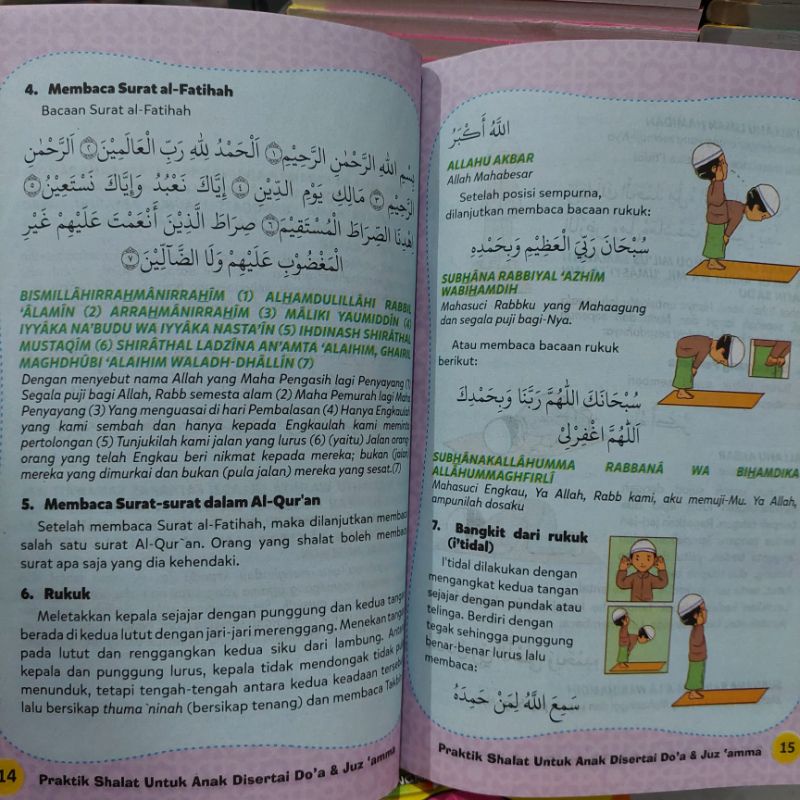 4. Membaca Surat al-Fatihah
Bacaan Surat al-Fatihah
بِسْمِ اللهِ الرَّحْمٰنِ الرَّحِيْمِ ١ اَلْحَمْدُ لِلّٰهِ رَبِّ الْعَالَمِيْنَ ٢ اَلرَّحْمٰنِ
الرَّحِيْمِ ٣ مَالِكِ يَوْمِ الدِّيْنِ ٤ إِيَّاكَ نَعْبُدُ وَإِيَّاكَ نَسْتَعِيْنُ ٥
اِهْدِنَا الصِّرَاطَ الْمُسْتَقِيْمَ ٦ صِرَاطَ الَّذِيْنَ أَنْعَمْتَ عَلَيْهِمْ غَيْرِ
الْمَغْضُوْبِ عَلَيْهِمْ وَلَا الضَّآلِّيْنَ ٧
BISMILLÂHIRRAHMÂNIRRAHÎM (1) ALHAMDULILLÂHI RABBIL
‘ÂLAMÎN (2) ARRAHMÂNIRRAHÎM (3) MÂLIKI YAUMIDDÎN (4)
IYYÂKA NA’BUDU WA IYYÂKA NASTA’ÎN (5) IHDINASH SHIRÂTHAL
MUSTAQÎM (6) SHIRÂTHAL LADZÎNA AN’AMTA ‘ALAIHIM, GHAIRIL
MAGHDHÛBI ‘ALAIHIM WALADH-DHÂLLÎN (7)
Dengan menyebut nama Allah yang Maha Pengasih lagi Penyayang (1)
Segala puji bagi Allah, Rabb semesta alam (2) Maha Pemurah lagi Maha
Penyayang (3) Yang menguasai di hari Pembalasan (4) Hanya Engkaulah
yang kami sembah dan hanya kepada Engkaulah kami meminta
pertolongan (5) Tunjukilah kami jalan yang lurus (6) (yaitu) Jalan orang-
orang yang telah Engkau beri nikmat kepada mereka; bukan (jalan)
mereka yang dimurkai dan bukan (pula jalan) mereka yang sesat.(7)
5. Membaca Surat-surat dalam Al-Qur'an
Setelah membaca Surat al-Fatihah, maka dilanjutkan membaca
salah satu surat Al-Qur`an. Orang yang shalat boleh membaca
surat apa saja yang dia kehendaki.
6. Rukuk
Meletakkan kepala sejajar dengan punggung dan kedua tangan
berada di kedua lutut dengan jari-jari merenggang. Menekan tangan
pada lutut dan renggangkan kedua siku dari lambung. Antara
kepala dan punggung lurus, kepala tidak mendongak tidak pula
menunduk, tetapi tengah-tengah antara kedua keadaan tersebut
lalu bersikap thuma`ninah (bersikap tenang) dan membaca Takbir
14 Praktik Shalat Untuk Anak Disertai Do'a & Juz 'amma
اللهُ أَكْبَرُ
ALLAHU AKBAR
Allah Mahabesar
Setelah posisi sempurna,
dilanjutkan membaca bacaan rukuk:
سُبْحَانَ رَبِّيَ الْعَظِيْمِ وَبِحَمْدِهِ
SUBHÂNA RABBIYAL ‘AZHÎM
WABIHAMDIH
Mahasuci Rabbku yang Mahaagung
dan segala puji bagi-Nya.
Atau membaca bacaan rukuk
berikut:
سُبْحَانَكَ اللّٰهُمَّ رَبَّنَا وَبِحَمْدِكَ
اَللّٰهُمَّ اغْفِرْلِيْ
SUBHÂNAKALLÂHUMMA RABBANÂ WA BIHAMDIKA
ALLÂHUMMAGHFIRLÎ
Mahasuci Engkau, Ya Allah, Rabb kami, aku memuji-Mu. Ya Allah,
ampunilah dosaku
7. Bangkit dari rukuk
(i’tidal)
I'tidal dilakukan dengan
mengangkat kedua tangan
sejajar dengan pundak atau
telinga. Berdiri dengan
tegak sehingga punggung
benar-benar lurus lalu
membaca:
سَمِعَ اللهُ لِمَنْ حَمِدَهُ
Praktik Shalat Untuk Anak Disertai Do'a & Juz 'amma 15